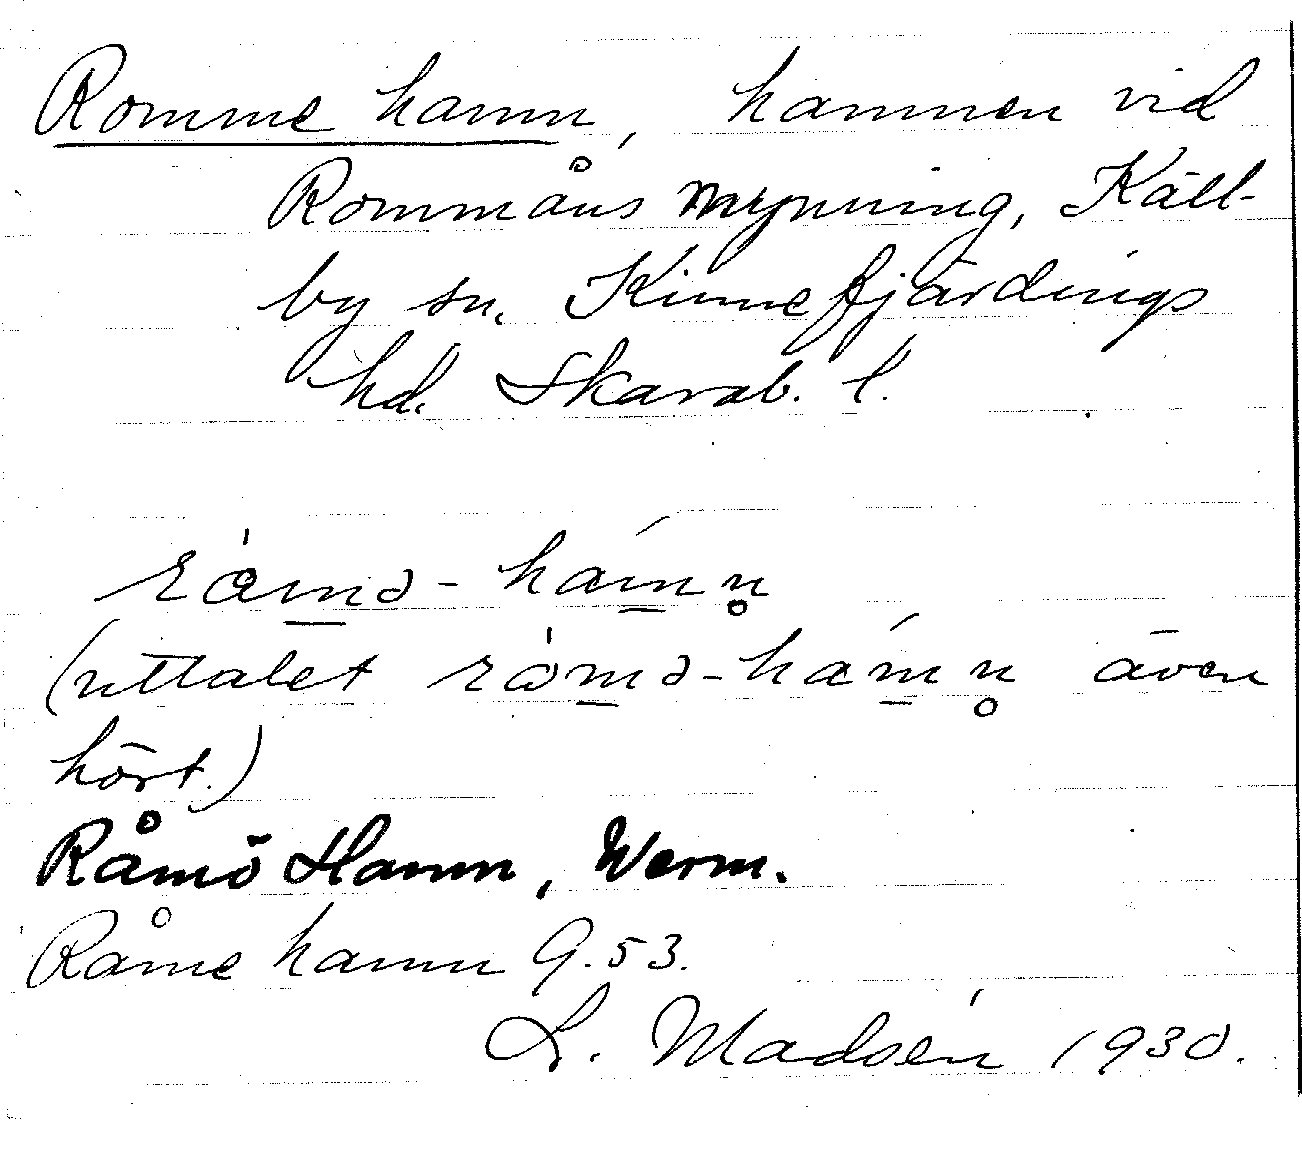 Romme hamn, hamnen vid
Rommåns mynning, Käll-
by sn. Kinnefjärdings
hd. Skarab. l.
råmə-hamn̥
(uttalet råmə-hamn̥ även
hört.)
Råmö Hamn, Werm.
Råme hamn G.53.
L. Madsén 1930.